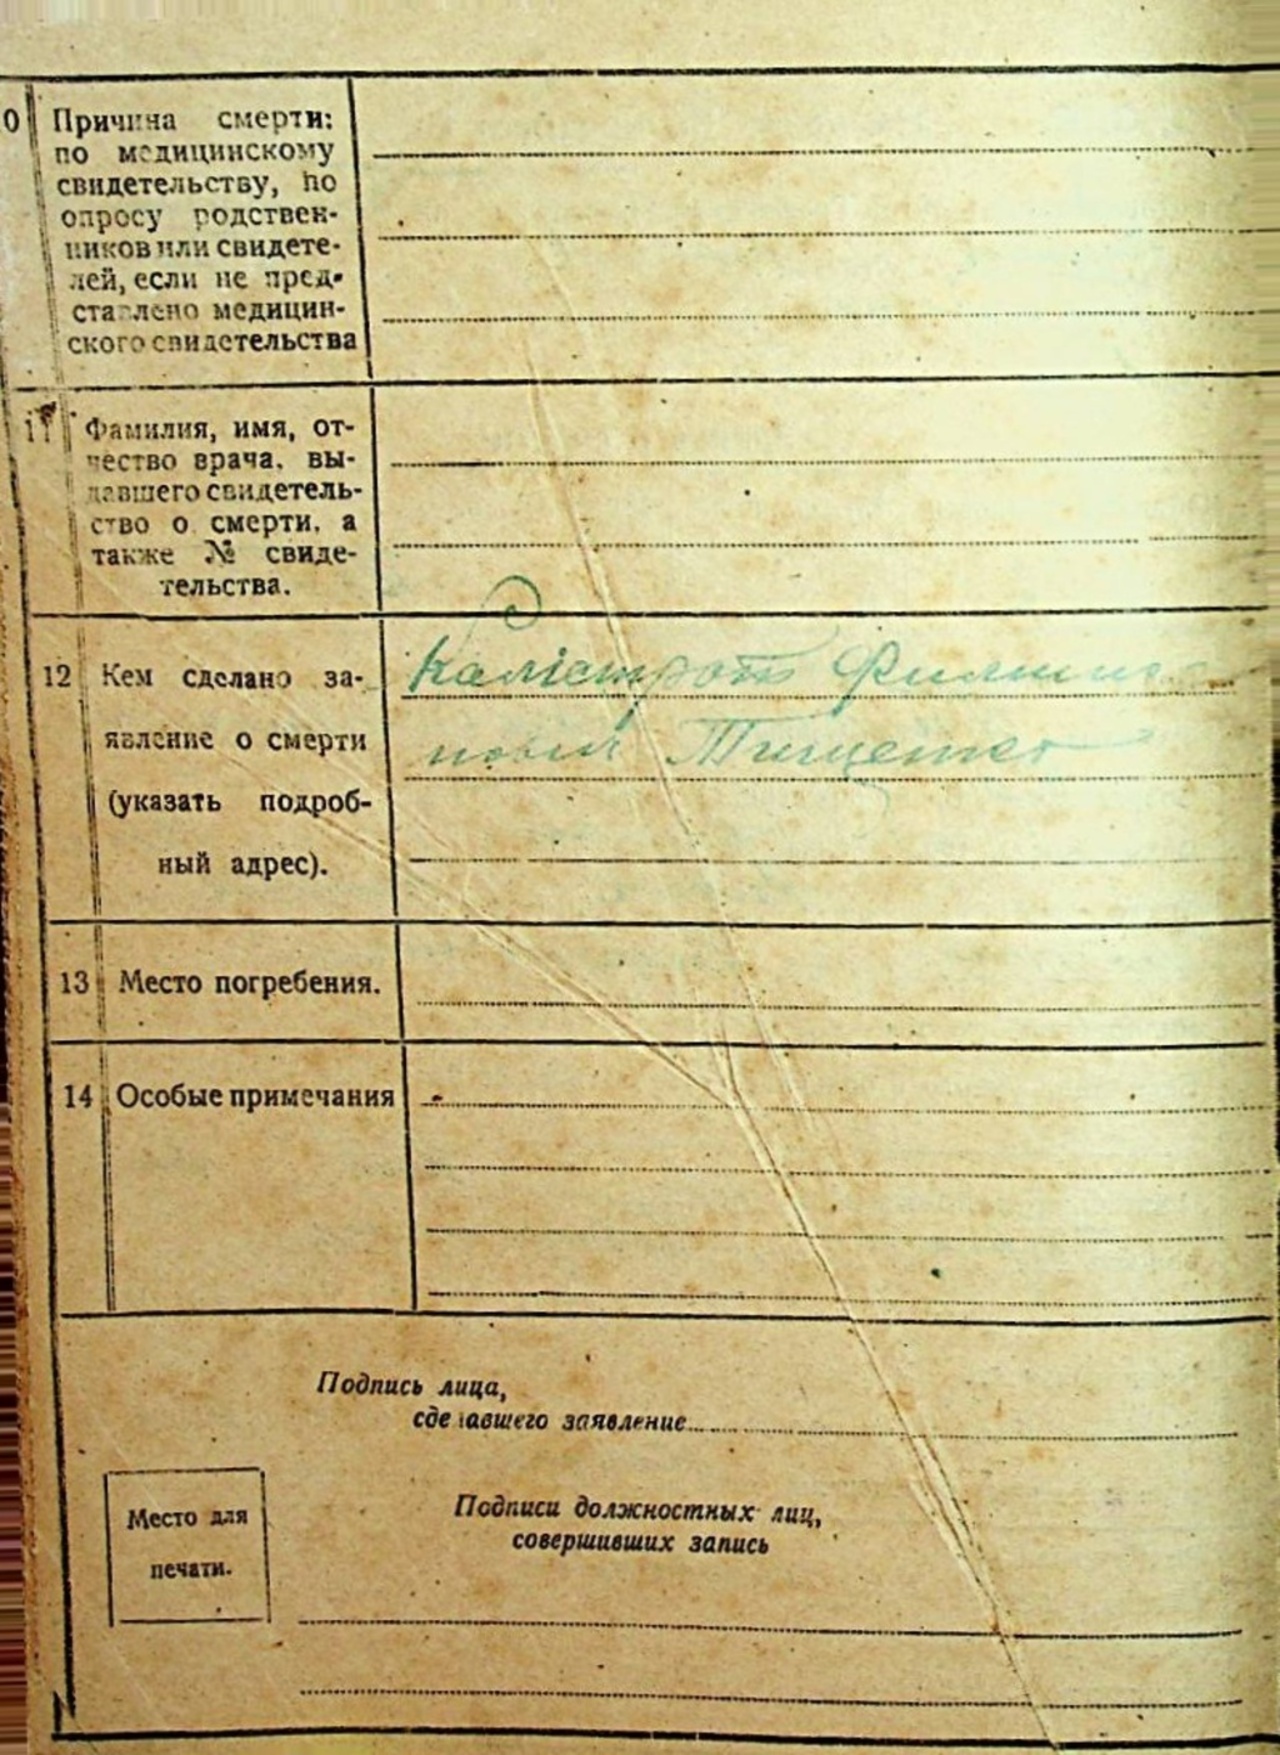 0 Причина смерти:
по медицинскому
свидетельству, по
опросу родствен-
ников или свидете-
лей, если не пред-
ставлено медицин-
ского свидетельства
11 Фамилия, имя, от-
чество врача, вы-
давшего свидетель-
ство о смерти, а
также № свиде-
тельства.
12 Кем сделано за-
Калістрат
явление о смерти
Тищенко
(указать подроб-
ный адрес).
13 Место погребения.
14 Особые примечания
Подпись лица,
сделавшего заявление
Место для
печати.
Подписи должностных лиц,
совершивших запись